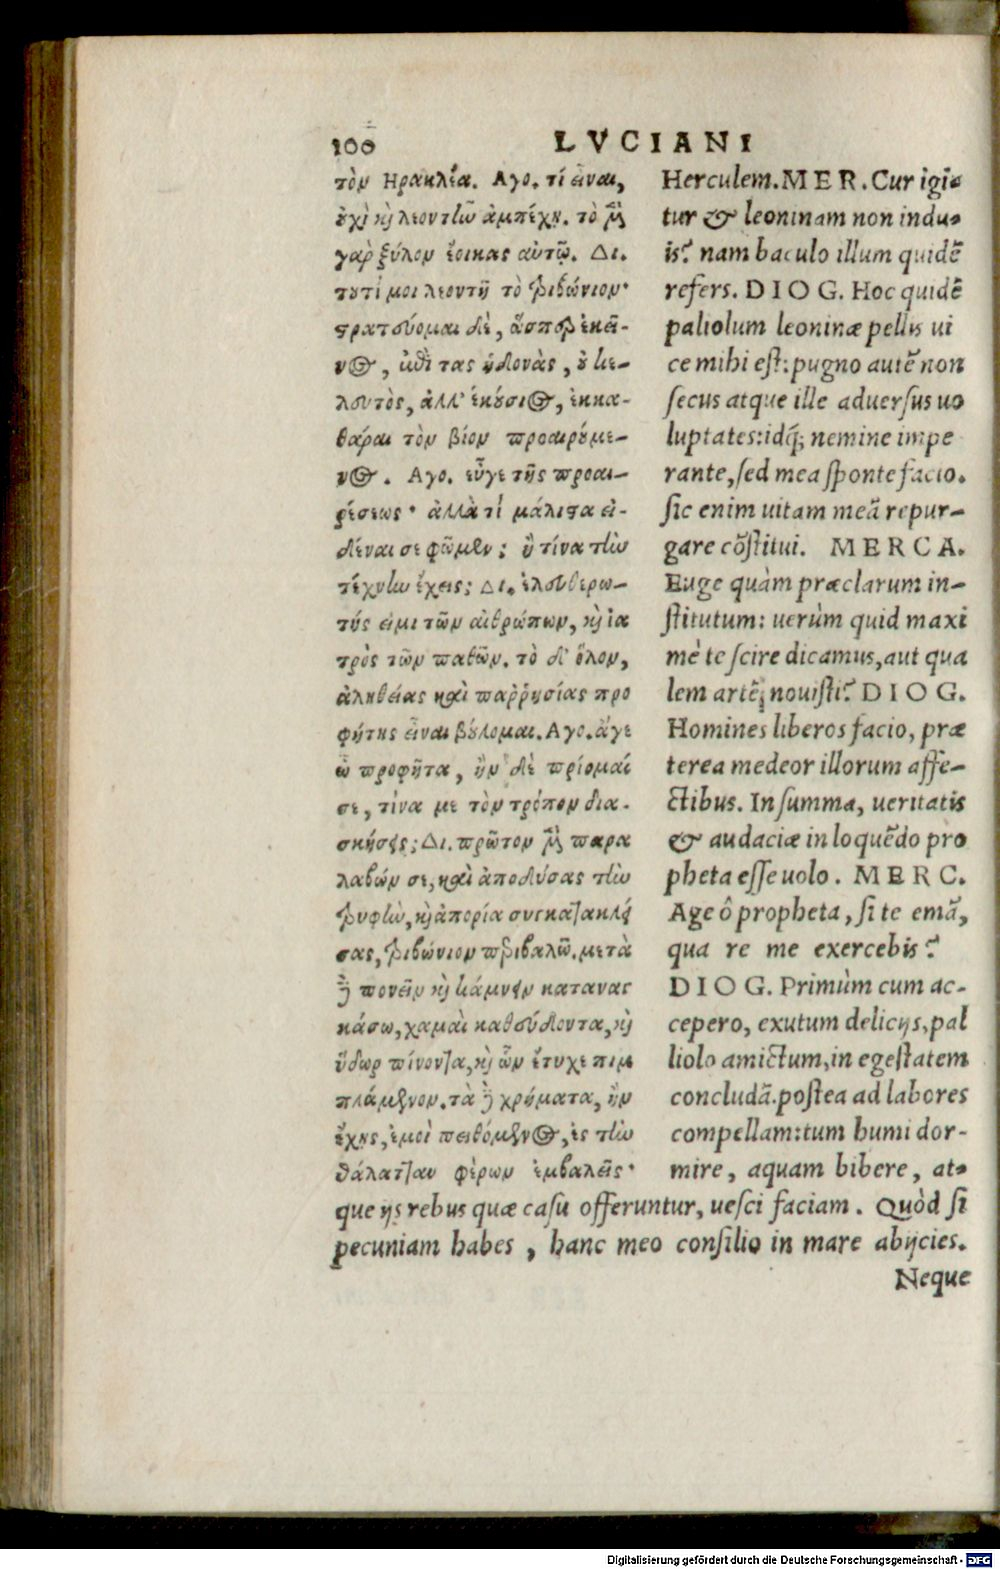 100
LVCIANI
τὸν Ηρακλέα. Αγο. τί εἶναι,
ὀχὶ κ̀ λεοντίω ἀμπέχῃ. τὸ μ̀
γαρ ξύλον ἔοικας αὐτῷ. Δι.
τουτί μοι λεοντῆ τὸ τριβώνιον·
στρατεύομαι δὲ, ὥσπερ ἐκεῖ-
νος, ἐπὶ τας ἡδονὰς, οὐ κε-
λευτὸς, ἀλλ' ἑκούσιος, ἐκκα-
θᾶραι τὸν βίον προαιρούμε-
νος. Αγο. εὖγε τῆς προαι-
ρέσεως· ἀλλὰ τί μάλιστα εἰ-
δέναι σε φῶμεν; ἢ τίνα τὴν
τέχνην ἔχεις; Δι. ἐλευθερω-
τής εἰμι τῶν ἀνθρώπων, κ̀ ἰα
τρὸς τῶν παθῶν. τὸ δ' ὅλον,
ἀληθείας καὶ παῤῥησίας προ
φήτης εἶναι βούλομαι. Αγο. ἄγε
ὦ προφῆτα, ἢν δὲ πρίομαί
σε, τίνα με τὸν τρόπον δια-
σκήσεις; Δι. πρῶτον μ̀ παρα
λαβών σε, καὶ ἀποδύσας τὴν
τρυφὴν, κ̀ ἀπορίᾳ συγκατακλεί
σας, τριβώνιον περιβαλῶ. μετὰ
δὲ πονεῖν κ̀ κάμνειν καταναγ
κάσω, χαμαὶ καθεύδοντα, κ̀
ὕδωρ πίνοντα, κ̀ ὧν ἔτυχε πιμ
πλάμενον. τὰ δὲ χρήματα, ἢν
ἔχῃς, ἐμοὶ πειθόμενος, ἐς τὴν
θάλατταν φέρων ἐμβαλεῖς·
Herculem. MER. Cur igi-
tur & leoninam non indu-
is? nam baculo illum quidē
refers. DIOG. Hoc quidē
paliolum leoninæ pellis ui
ce mihi est: pugno autē non
secus atque ille aduersus uo
luptates: idq; nemine impe
rante, sed mea sponte facio.
sic enim uitam meā repur-
gare cōstitui. MERCA.
Euge quàm præclarum in-
stitutum: uerùm quid maxi
mè te scire dicamus, aut qua
lem artē nouisti? DIOG.
Homines liberos facio, præ
terea medeor illorum affe-
ctibus. In summa, ueritatis
& audaciæ in loquēdo pro
pheta esse uolo. MERC.
Age ô propheta, si te emā,
qua re me exercebis?
DIOG. Primùm cum ac-
cepero, exutum delicijs, pal
liolo amictum, in egestatem
concludā. postea ad labores
compellam: tum humi dor-
mire, aquam bibere, at-
que ijs rebus quæ casu offeruntur, uesci faciam. Quòd si
pecuniam habes, hanc meo consilio in mare abijcies.
Neque
Digitalisierung gefördert durch die Deutsche Forschungsgemeinschaft - DFG